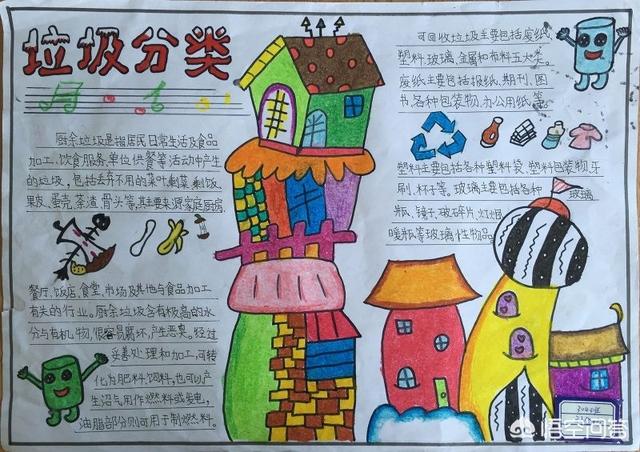 垃圾分类
厨余垃圾是指居民日常生活及食品
加工、饮食服务、单位供餐等活动中产生
的垃圾，包括丢弃不用的菜叶、剩菜、剩饭、
果皮、蛋壳、茶渣、骨头等，其主要来源家庭厨房、
餐厅、饭店、食堂、市场及其他与食品加工
有关的行业。厨余垃圾含有极高的水
分与有机物，很容易腐坏，产生恶臭。经过
妥善处理和加工，可转
化为肥料、饲料，也可以产
生沼气用作燃料或发电，
油脂部分则可用于制燃料。
可回收垃圾主要包括废纸、
塑料、玻璃、金属和布料五大类。
废纸主要包括报纸、期刊、图
书、各种包装物、办公用纸、等。
塑料主要包括各种塑料袋、塑料包装物、牙
刷、杯子等，玻璃主要包括各种
玻璃
瓶、镜子、破碎片、灯泡、
暖瓶等玻璃性物品
悟空问答